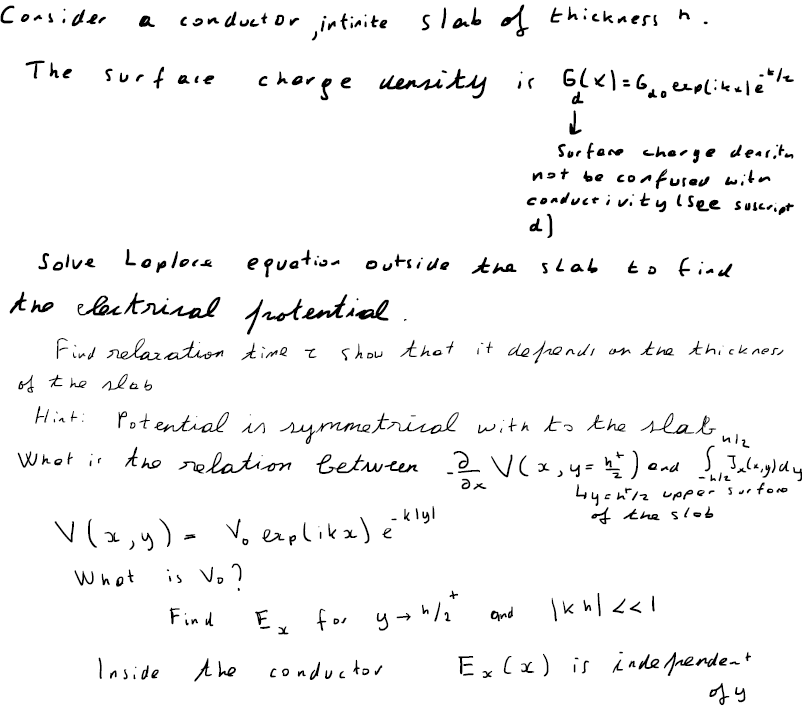 Consider a conductor, infinite slab of thickness h.
The surface charge density is σ_d(x) = σ_do exp(ikx) e^{-t/z}
↓
Surface charge density
not be confused with
conductivity (see suscript
d)
Solve Laplace equation outside the slab to find
the electrical potential.
Find relaxation time τ show that it depends on the thickness
of the slab
Hint: Potential is symmetrical with to the slab
What is the relation between -∂/∂x V(x, y = h⁺/2) and ∫_{-h/2}^{h/2} J_x(x,y)dy
↳ y = h⁺/2 upper surface
of the slab
V(x,y) = V_0 exp(ikx) e^{-k|y|}
What is V_0?
Find E_x for y → h/2⁺ and |kh| << 1
Inside the conductor E_x(x) is independent
of y